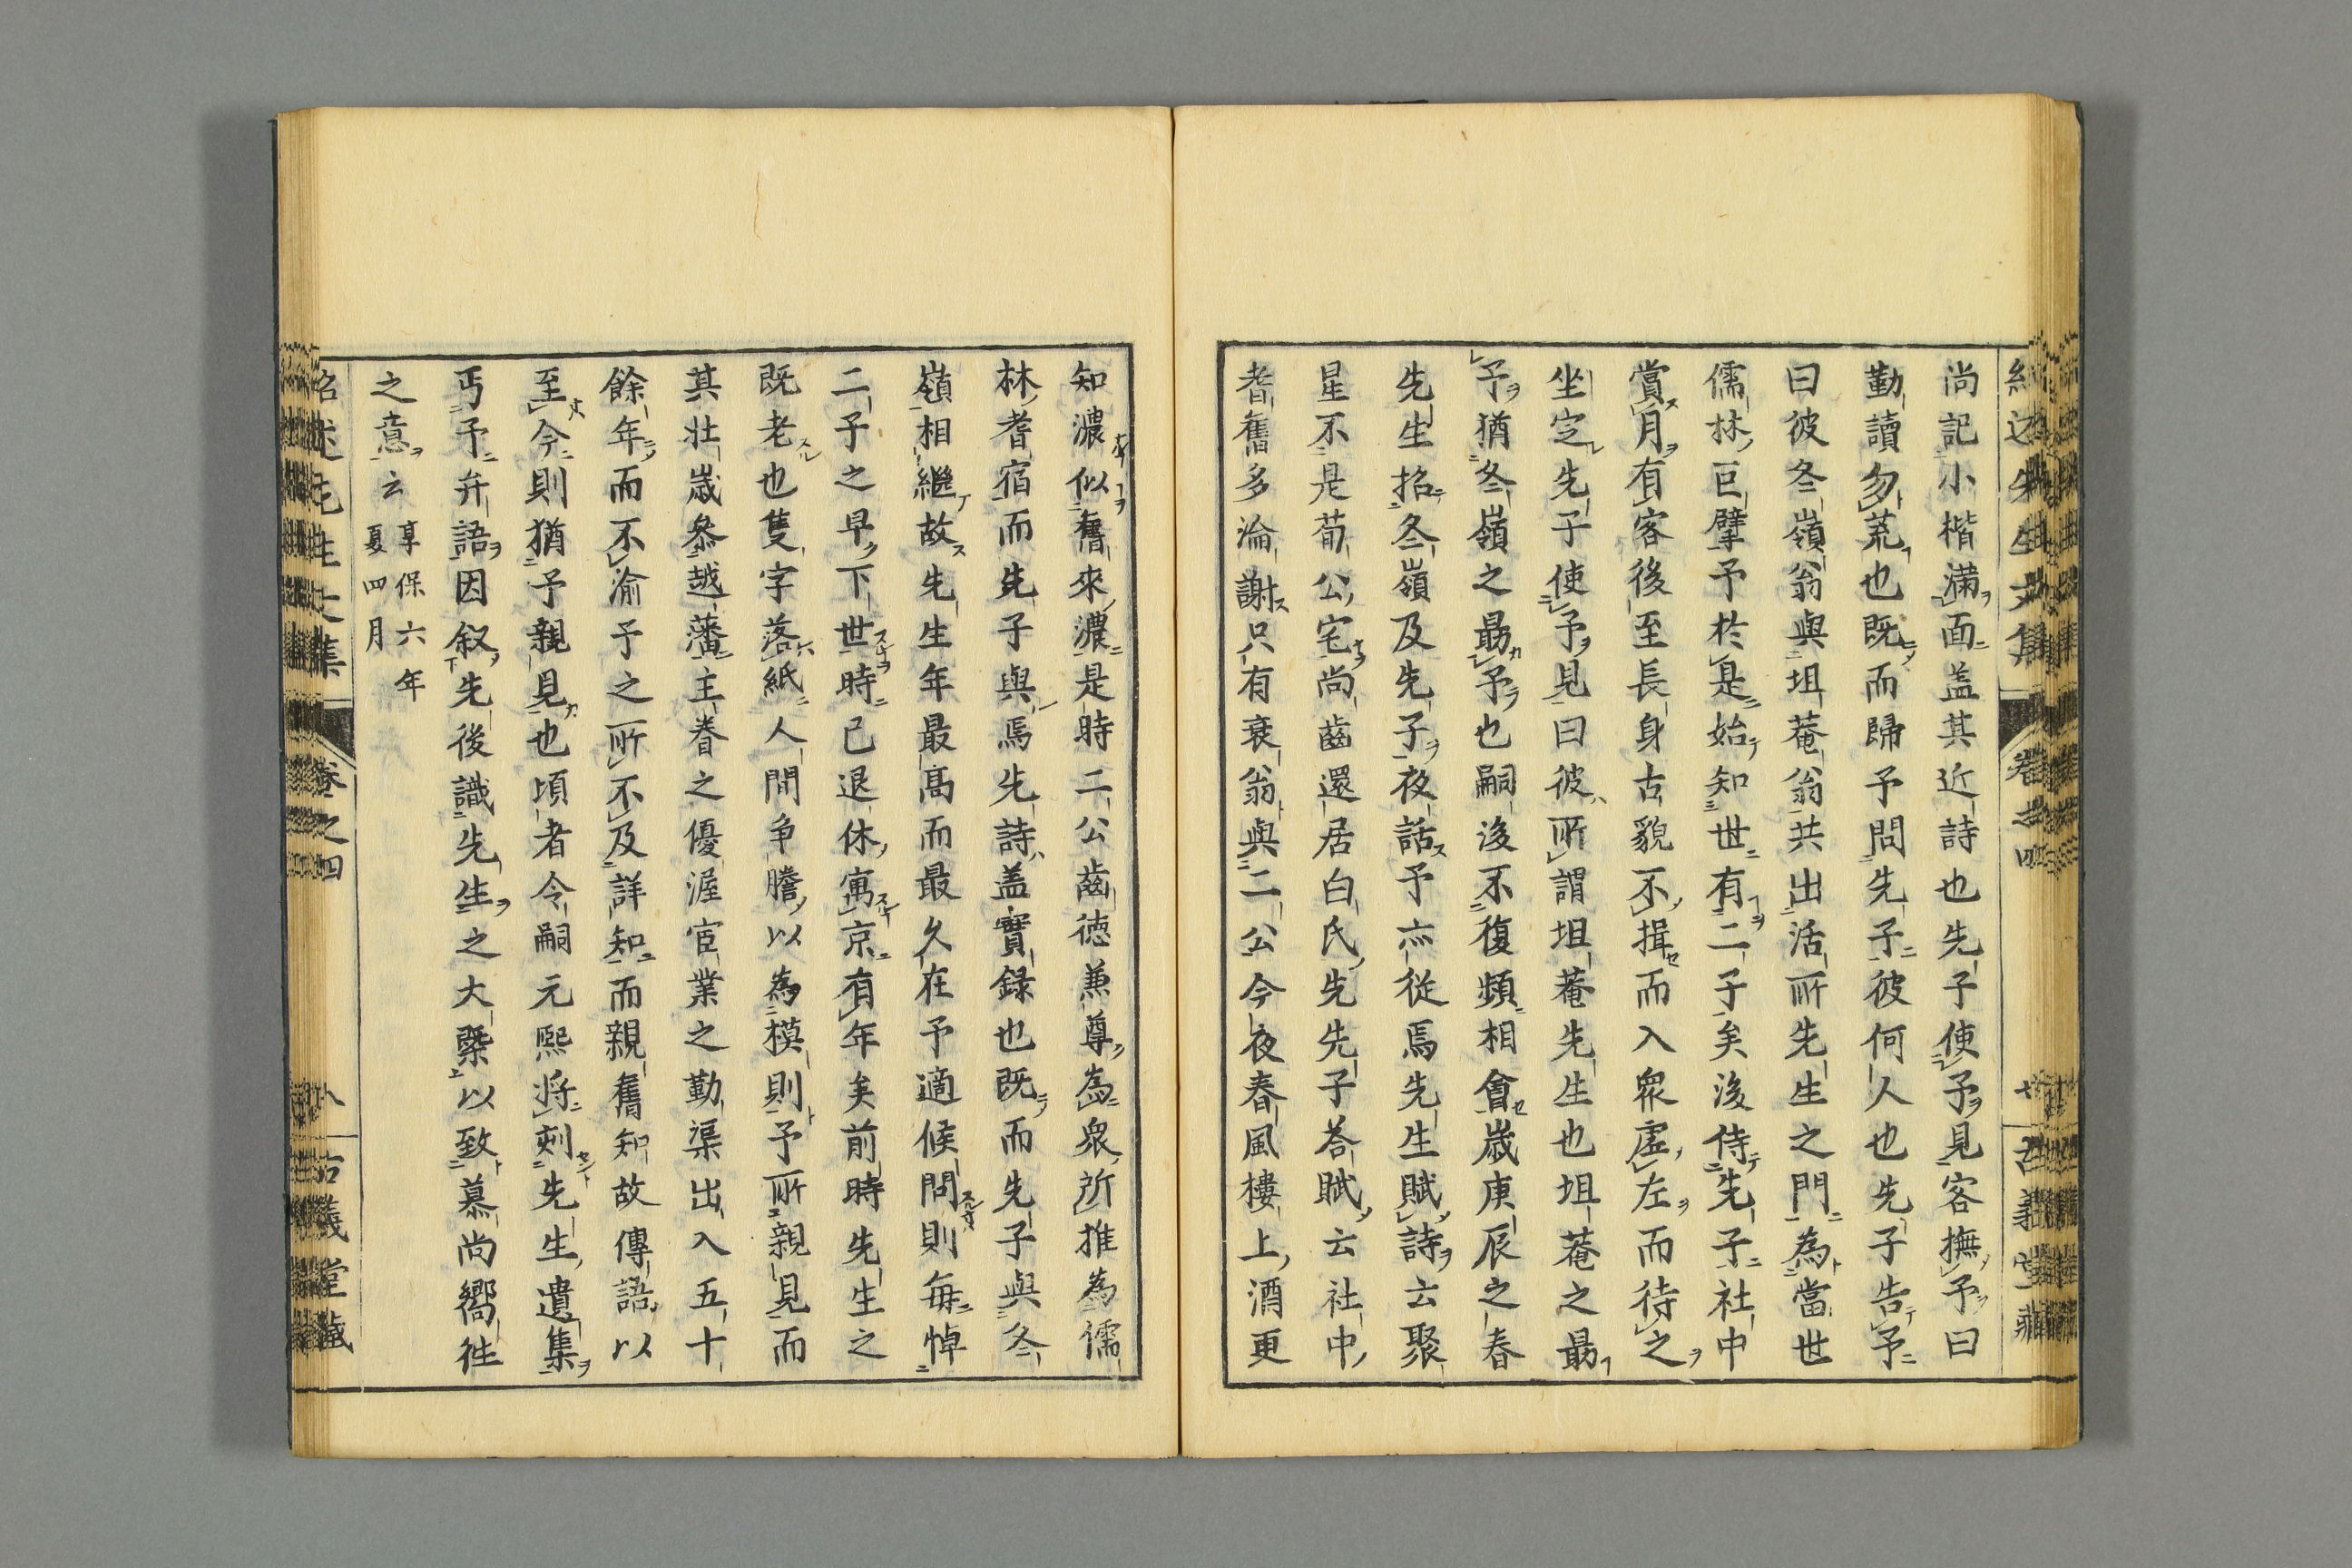 尚記小楷滿面盖其近詩也先子使予見客撫予曰
勤讀勿荒也既而歸予問先子彼何人也先子告予
曰彼冬嶺翁與坦菴翁共出活所先生之門為當世
儒林巨擘予於是始知世有二子矣後侍先子社中
賞月有客後至長身古貌不揖而入衆虛左而待之
坐定先子使予見曰彼所謂坦菴先生也坦菴之最
予猶冬嶺之最予也嗣後不復頻相會歲庚辰之春
先生招冬嶺及先子夜話予亦從焉先生賦詩云聚
星不是荀公宅尚齒還居白氏先先子荅賦云社中
耆舊多淪謝只有衰翁與二公今夜春風樓上酒更
知濃似舊來濃是時二公齒德兼尊為衆所推為儒
林耆宿而先子與焉先詩盖實録也既而先子與冬
嶺相繼故先生年最高而最久在予適候問則毎悼
二子之早下世時已退休寓京有年矣前時先生之
既老也隻字落紙人間争謄以為模則予所親見而
其壮歲叅越藩主眷之優渥宦業之勤渠出入五十
餘年而不渝予之所不及詳知而親舊知故傳語以
至今則猶予親見也頃者令嗣元熙将刻先生遺集
丐予弁語因叙先後識先生之大槩以致慕尚嚮徃
之意云
享保六年
夏四月
紹述先生文集
卷之四
八
古義堂藏